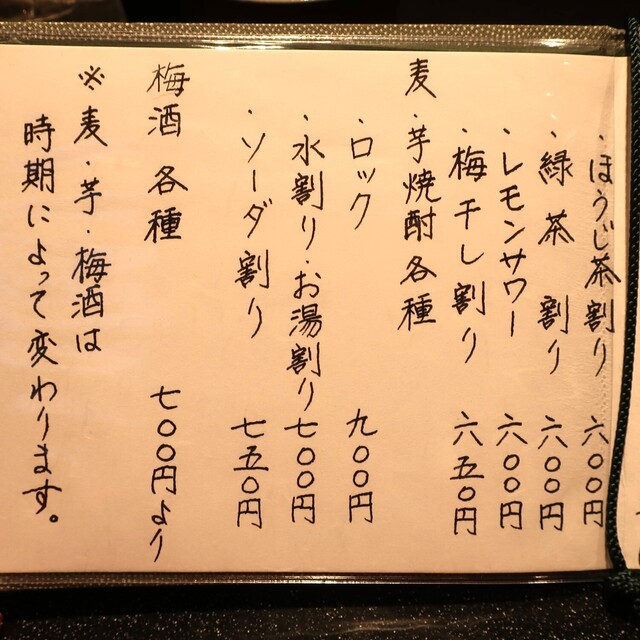 ・ほうじ茶割り 六〇〇円
・緑茶割り 六〇〇円
・レモンサワー 六〇〇円
・梅干し割り 六五〇円
麦・芋焼酎各種
・ロック 九〇〇円
・水割り・お湯割り 七〇〇円
・ソーダ割り 七五〇円
梅酒 各種 七〇〇円より
※麦・芋・梅酒は
時期によって変わります。